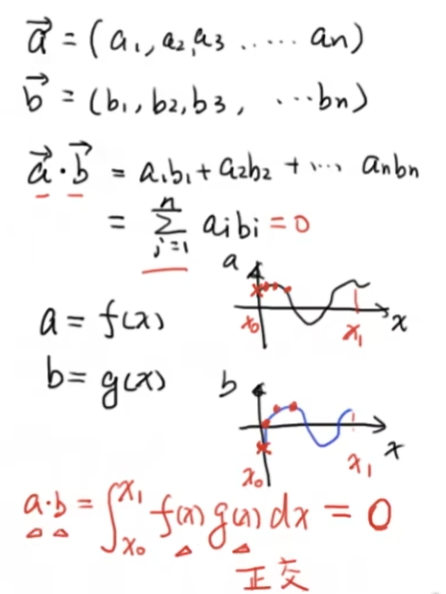 a⃗ = (a₁, a₂, a₃ ..... aₙ)
b⃗ = (b₁, b₂, b₃, ...bₙ)
a⃗·b⃗ = a₁b₁ + a₂b₂ + ... aₙbₙ
= ∑ⁿᵢ₌₁ aᵢbᵢ = 0
a
x₀ x₁ x
a = f(x)
b = g(x)
b
x₀ x₁ x
a·b = ∫ₓ₀ˣ¹ f(x) g(x) dx = 0
正交